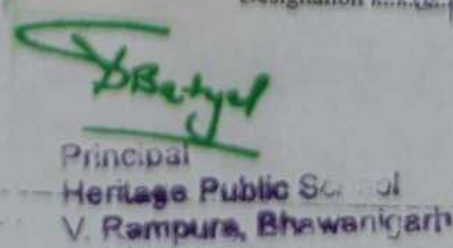 Designation
Principal
Heritage Public School
V. Rampura, Bhawanigarh